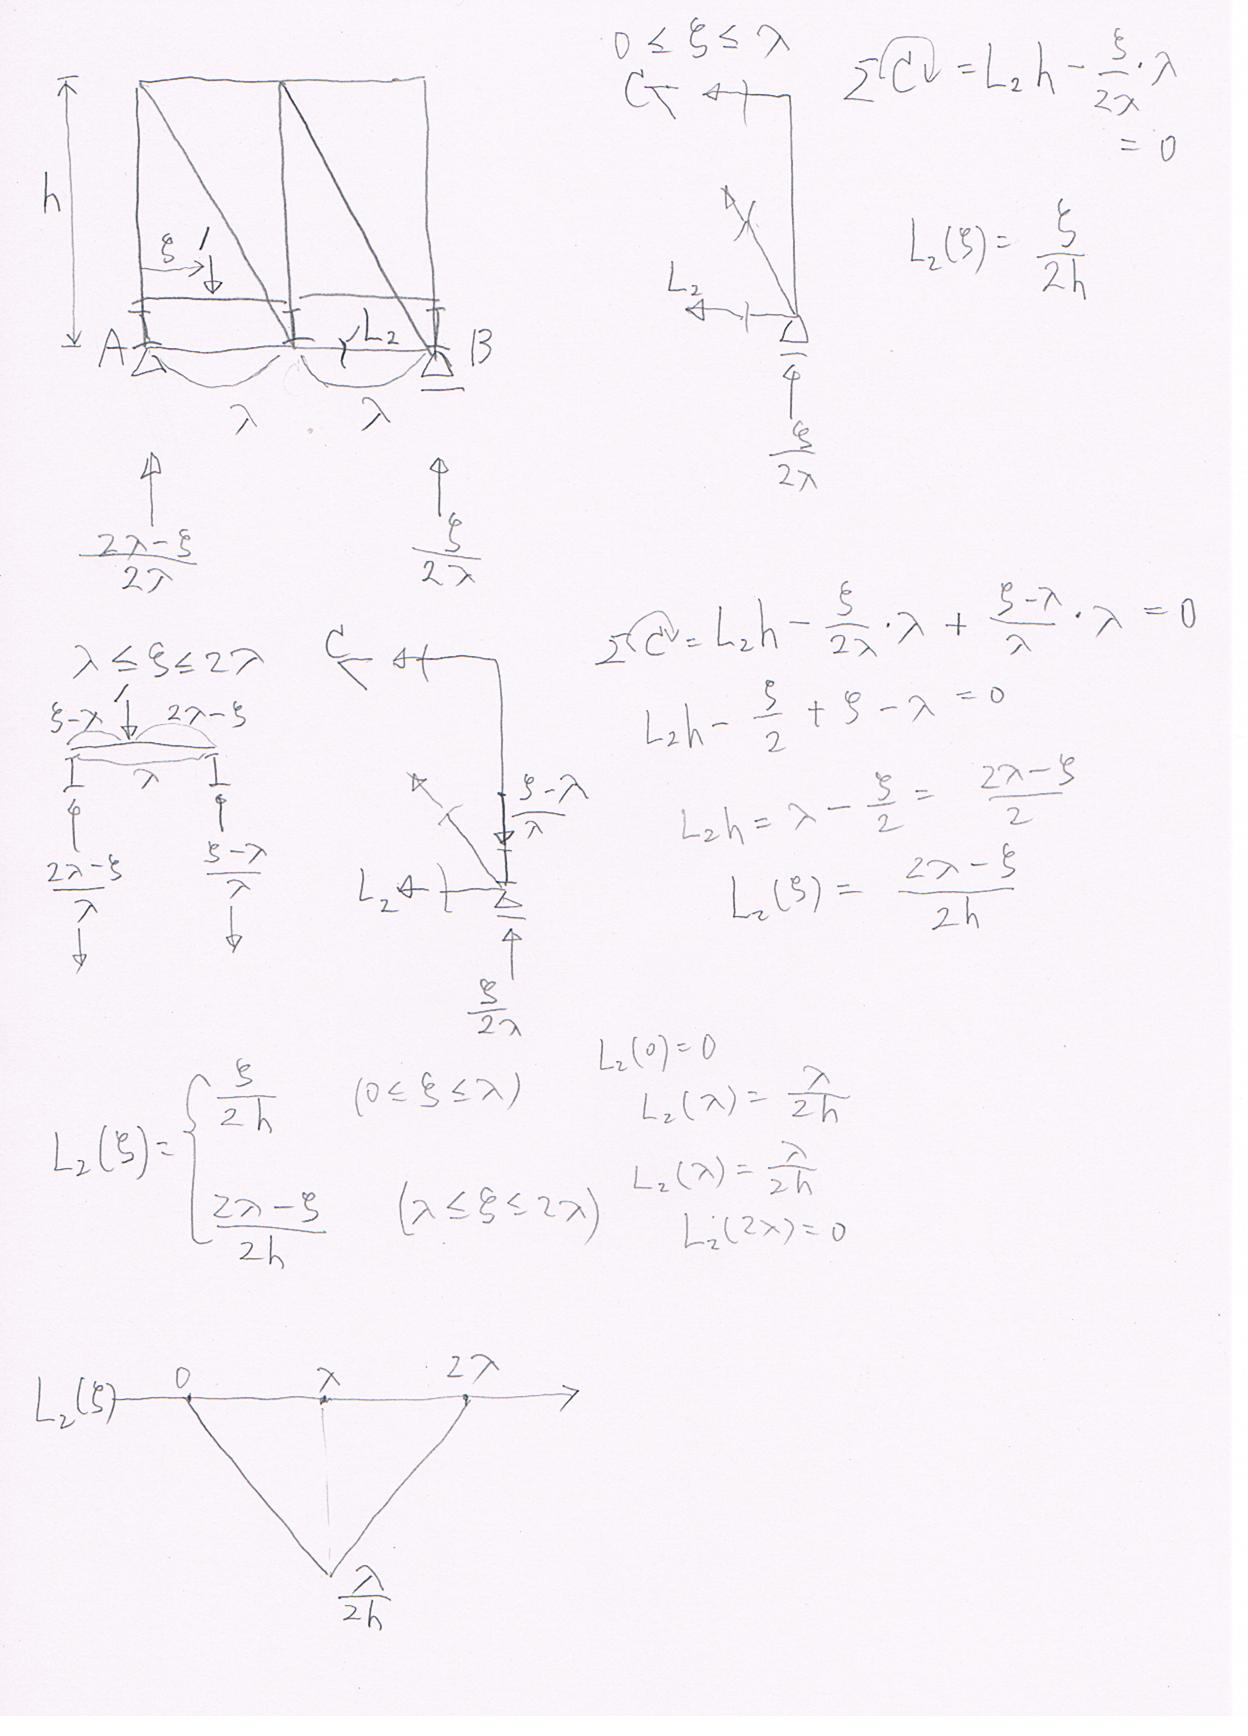 h
ξ
1
A
L₂
B
λ
λ
(2λ-ξ)/2λ
ξ/2λ
0 ≤ ξ ≤ λ
C
L₂
ξ/2λ
Σ C = L₂h - ξ/2λ · λ
= 0
L₂(ξ) = ξ/2h
λ ≤ ξ ≤ 2λ
1
ξ-λ
2λ-ξ
λ
(2λ-ξ)/λ
(ξ-λ)/λ
C
(ξ-λ)/λ
L₂
ξ/2λ
Σ C = L₂h - ξ/2λ · λ + (ξ-λ)/λ · λ = 0
L₂h - ξ/2 + ξ - λ = 0
L₂h = λ - ξ/2 = (2λ-ξ)/2
L₂(ξ) = (2λ-ξ)/2h
L₂(ξ) = {
ξ/2h (0 ≤ ξ ≤ λ)
(2λ-ξ)/2h (λ ≤ ξ ≤ 2λ)
L₂(0) = 0
L₂(λ) = λ/2h
L₂(λ) = λ/2h
L₂(2λ) = 0
L₂(ξ)
0
λ
2λ
λ/2h